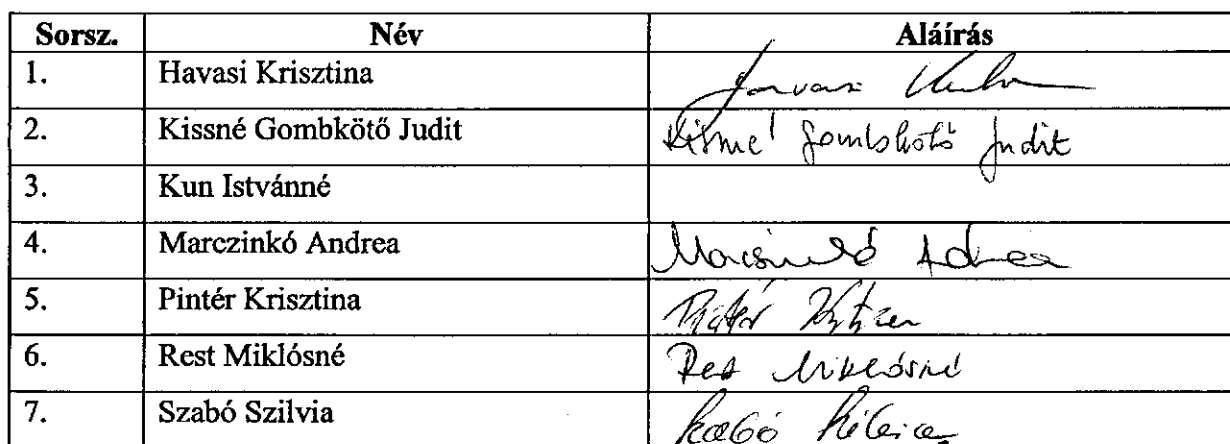 Sorsz. Név Aláírás
1. Havasi Krisztina
2. Kissné Gombkötő Judit Kissné Gombkötő Judit
3. Kun Istvánné
4. Marczinkó Andrea Marczinkó Andrea
5. Pintér Krisztina Pintér
6. Rest Miklósné Rest Miklósné
7. Szabó Szilvia Szabó Szilvia